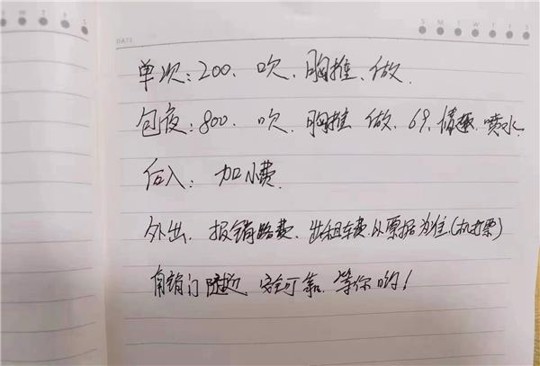 单次:200、吹、胸推、做
包夜:800、吹、胸推、做、69、情趣、喷水
后入:加小费
外出、报销路费、出租车费以票据为准(机打票)
有销门随边 安全可靠、等你哟!